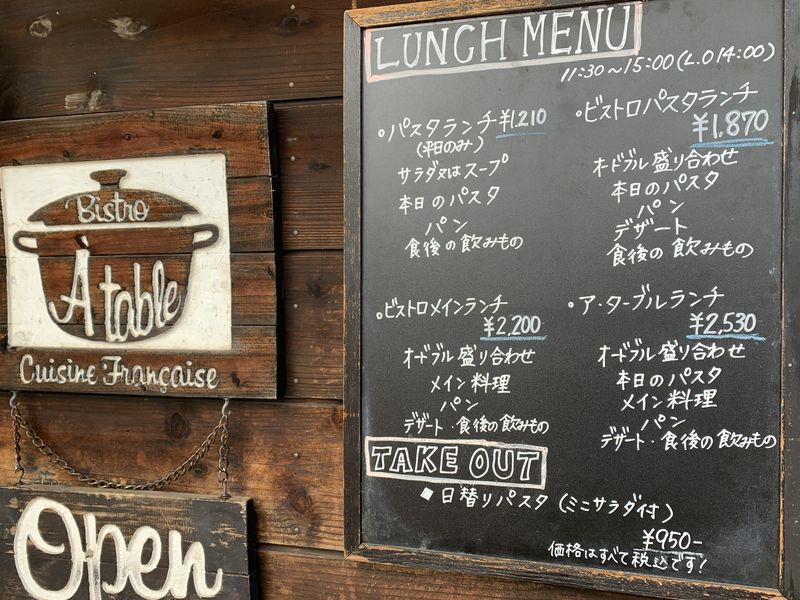 Bistro
À table
Cuisine Française
Open
LUNCH MENU
11:30〜15:00(L.O 14:00)
・パスタランチ ¥1.210
(平日のみ)
サラダ又はスープ
本日のパスタ
パン
食後の飲みもの
・ビストロパスタランチ
¥1,870
オードブル盛り合わせ
本日のパスタ
パン
デザート
食後の飲みもの
・ビストロメインランチ
¥2,200
オードブル盛り合わせ
メイン料理
パン
デザート・食後の飲みもの
・ア・ターブルランチ
¥2,530
オードブル盛り合わせ
本日のパスタ
メイン料理
パン
デザート・食後の飲みもの
TAKE OUT
◆日替りパスタ(ミニサラダ付)
¥950-
価格はすべて税込です!